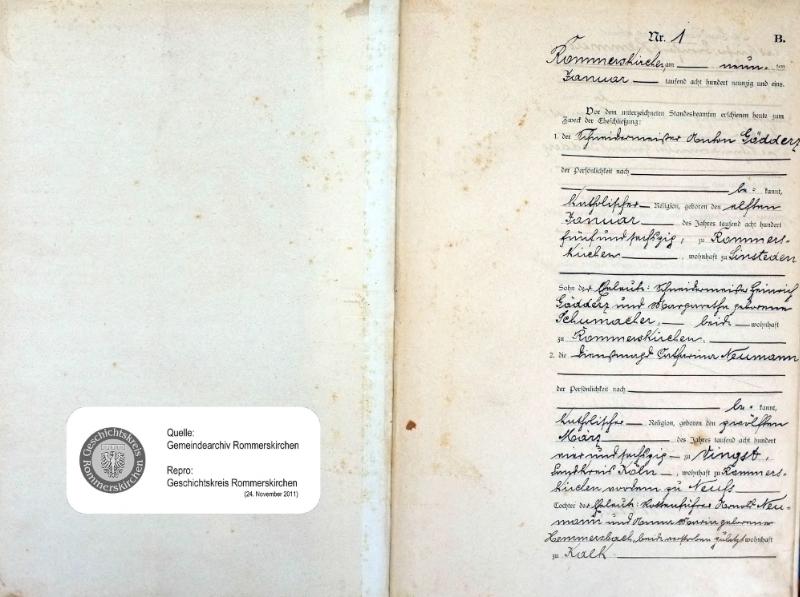 Geschichtskreis
Rommerskirchen
Quelle:
Gemeindearchiv Rommerskirchen
Repro:
Geschichtskreis Rommerskirchen
(24. November 2011)
Nr. 1 B.
Rommerskirchen, am neun ten
Januar tausend acht hundert neunzig und eins.
Vor dem unterzeichneten Standesbeamten erschienen heute zum
Zweck der Eheschließung:
1. der Schneidermeister Anton Gödderz
der Persönlichkeit nach
be kannt,
katholischer Religion, geboren den elften
Januar des Jahres tausend acht hundert
fünfundsechszig, zu Rommers-
kirchen, wohnhaft zu Sinsteden
Sohn der Eheleute: Schneidermeister Heinrich
Gödderz und Margaretha geborene
Schumacher, beide wohnhaft
zu Rommerskirchen.
2. die Dienstmagd Catharina Neumann
der Persönlichkeit nach
be kannt,
katholischer Religion, geboren den zwölften
März des Jahres tausend acht hundert
vier und sechszig zu Vingst,
Landkreis Köln, wohnhaft zu Rommers-
kirchen vordem zu Neuß
Tochter der Eheleute: Rottenführer Arnold Neu-
mann und Anna Maria geborene
Hemmersbach, beide verstorben zuletzt wohnhaft
zu Kalk